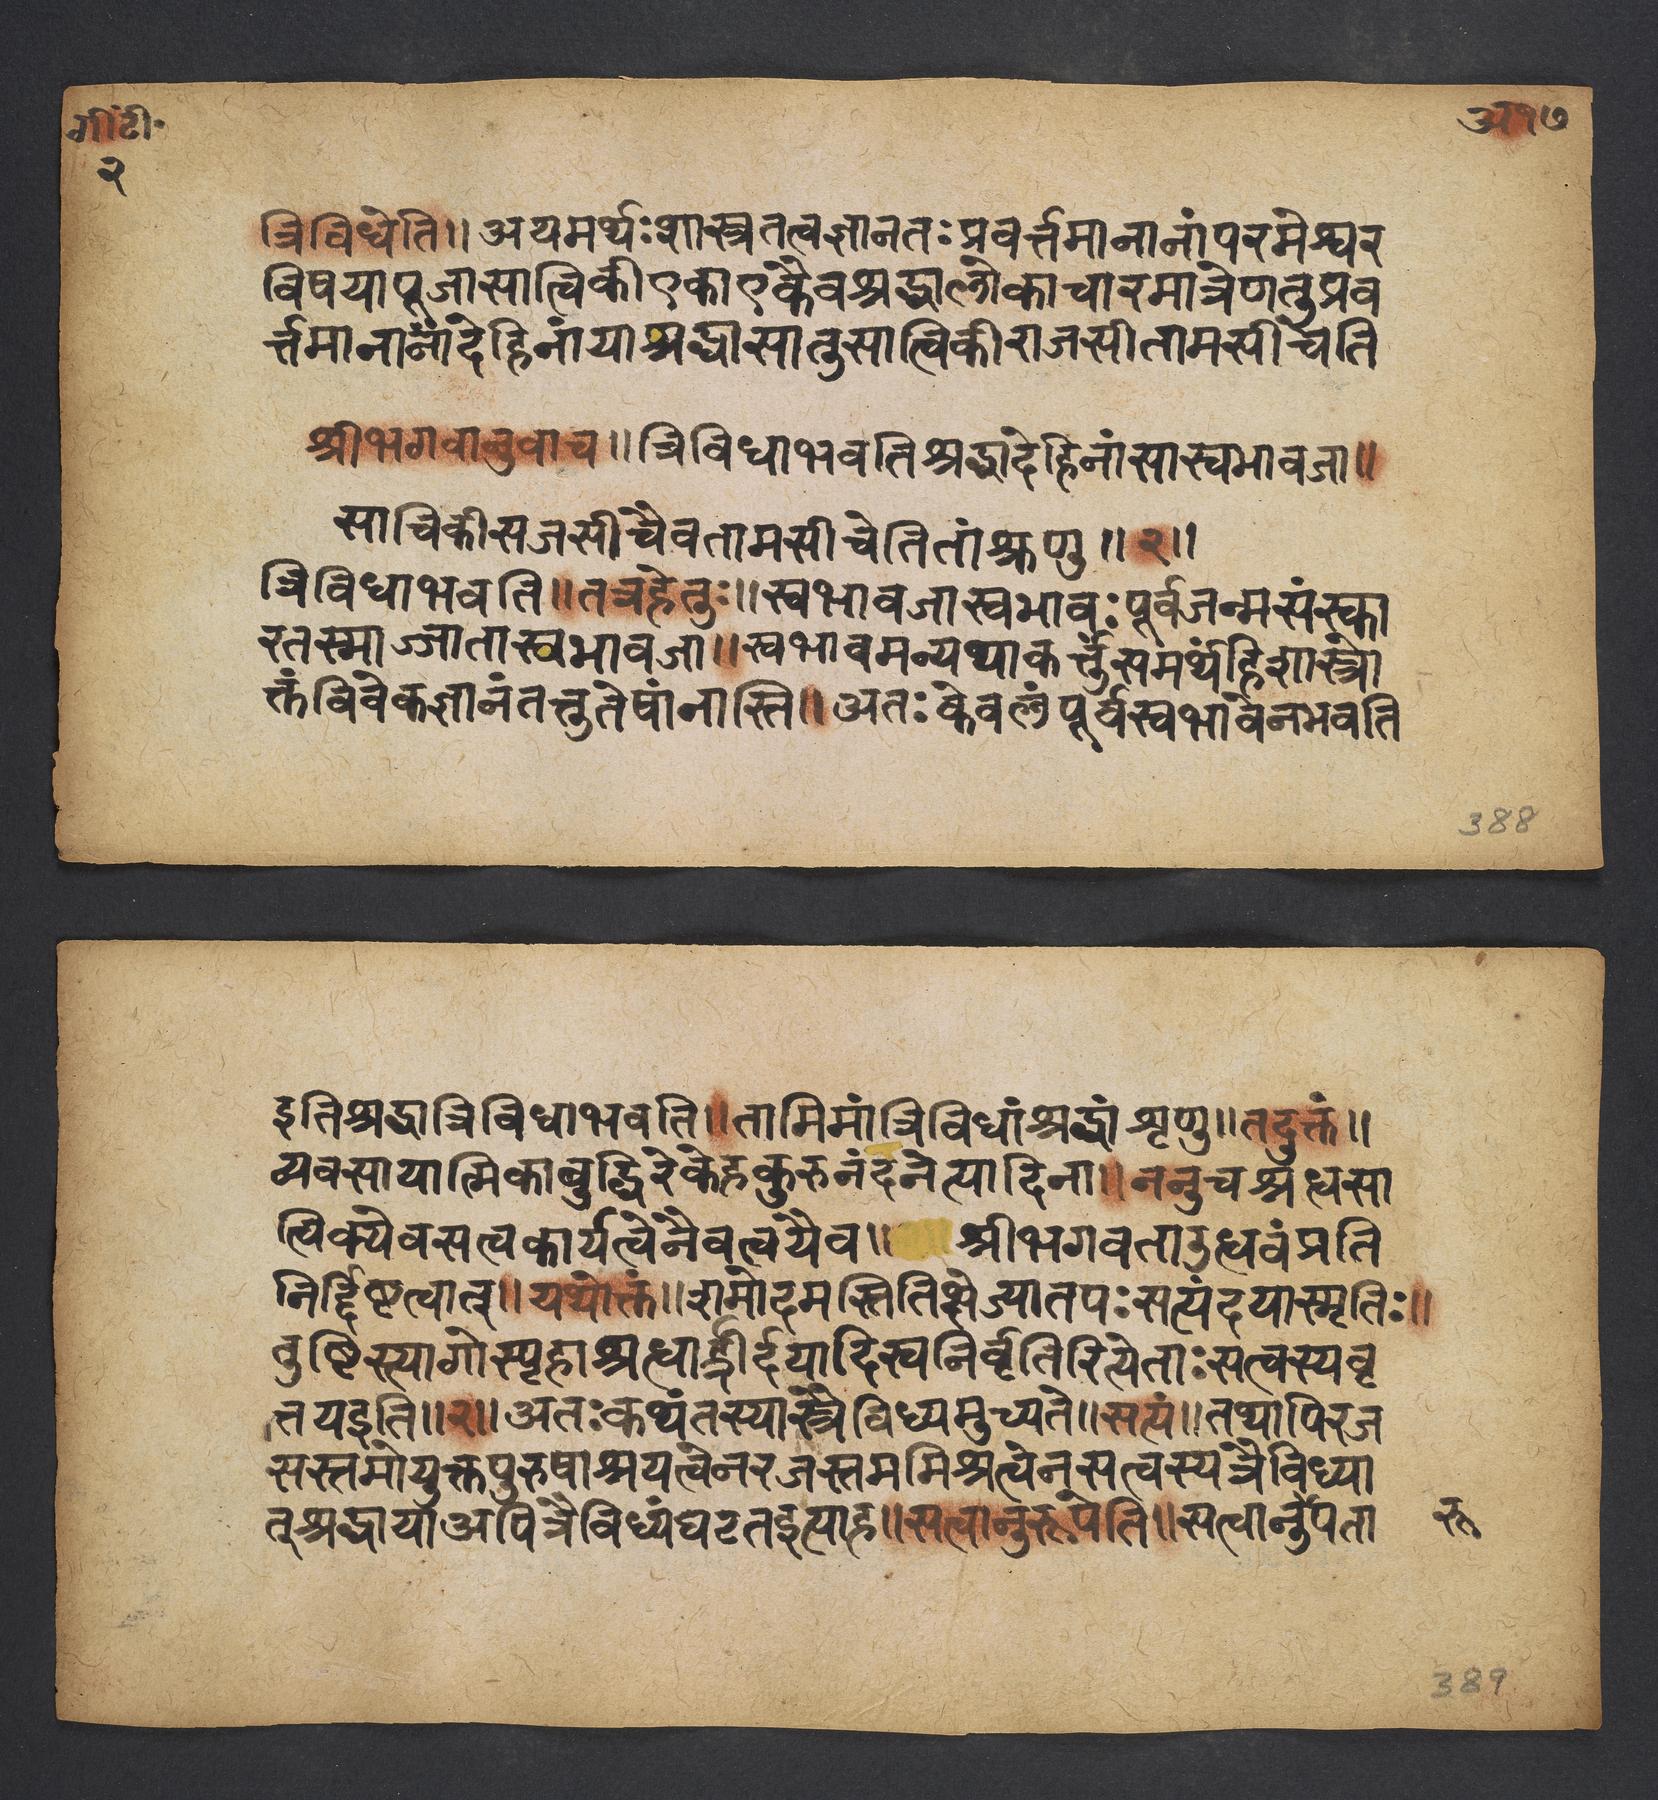 गीटी॰
२
अ १७
त्रिविधेति॥ अयमर्थः शास्त्रतत्वज्ञानतः प्रवर्त्तमानानां परमेश्वर
विषया पूजा सात्विकी एका एकैव श्रद्धा लोकाचारमात्रेण तु प्रव
र्त्तमानानां देहिनां या श्रद्धा सा तु सात्विकी राजसी तामसी चेति
श्रीभगवानुवाच॥ त्रिविधा भवति श्रद्धा देहिनां सा स्वभावजा॥
सात्विकी राजसी चैव तामसी चेति तां शृणु॥ २॥
त्रिविधा भवति॥ तत्र हेतुः॥ स्वभावजा स्वभावः पूर्वजन्मसंस्का
रतस्माज्जाता स्वभावजा॥ स्वभावमन्यथा कर्त्तुं समर्थं हि शास्त्रो
क्तं विवेकज्ञानं तत्तु तेषां नास्ति॥ अतः केवलं पूर्वस्वभावेन भवति
388
इति श्रद्धा त्रिविधा भवति॥ तामिमां त्रिविधां श्रद्धां शृणु॥ तदुक्तं॥
व्यवसायात्मिका बुद्धिरेकेह कुरुनंदनेत्यादिना॥ ननु च श्रद्धा सा
त्विक्येव सत्वकार्यत्वेनैव त्वयैव॥ श्रीभगवता उद्धवं प्रति
निर्द्दिष्टत्वात्॥ यथोक्तं॥ शमो दमस्तितिक्षेज्या तपः सत्यं दया स्मृतिः॥
तुष्टिस्त्यागो स्पृहा श्रद्धा ह्रीर्दयादि स्वनिर्वृतिरित्येताः सत्वस्य वृ
त्तय इति॥ २॥ अतः कथं तस्यास्त्रैविध्यमुच्यते॥ सत्यं॥ तथापि रज
सस्तमोयुक्तपुरुषाश्रयत्वेन रजस्तममिश्रत्वेन सत्वस्य त्रैविध्या
त् श्रद्धाया अपि त्रैविध्यं घटत इत्याह॥ सत्वानुरूपेति॥ सत्वानुपता
रू
389